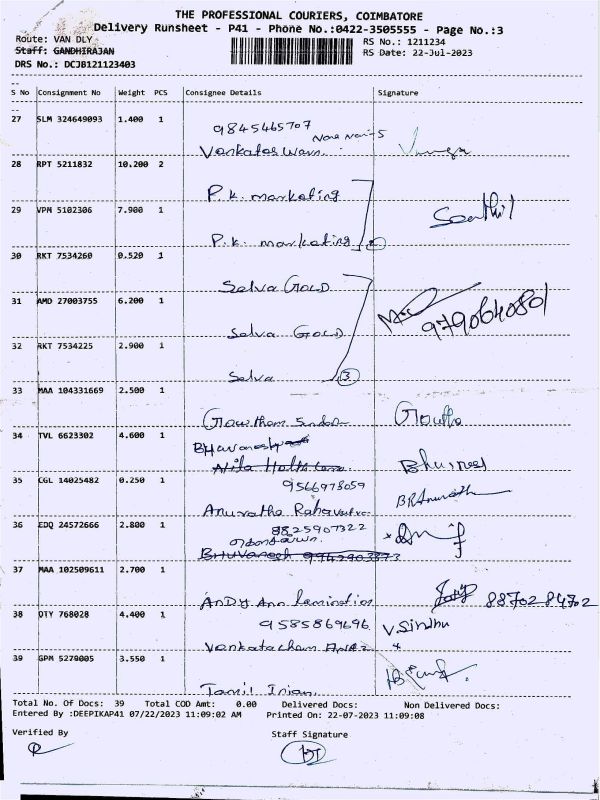 THE PROFESSIONAL COURIERS, COIMBATORE
Delivery Runsheet - P41 - Phone No.:0422-3505555 - Page No.:3
Route: VAN DLY
RS No.: 1211234
Staff: GANDHIRAJAN
RS Date: 22-Jul-2023
DRS No.: DCJB121123403
S No Consignment No Weight PCS Consignee Details Signature
27 SLM 324649093 1.400 1
9845465707
28 RPT 5211832 10.200 2
P.K. marketing
29 VPM 5102306 7.900 1
Senthil
P.K. marketing 2
30 RKT 7534260 0.520 1
Selva GOLD
31 AMD 27003755 6.200 1
9790640801
Selva GOLD
32 RKT 7534225 2.900 1
Selva 3
33 MAA 104331669 2.500 1
Gowtham
34 TVL 6623302 4.600 1
35 CGL 14025482 0.250 1
9566978059
Anuratha
36 EDQ 24572666 2.800 1
8825907322
Bhuvanesh 9942903373
37 MAA 102509611 2.700 1
Andy Ann Lamination 88702 84702
38 OTY 768028 4.400 1
9585869696 V.Sindhu
Venkatacham
39 GPM 5279005 3.550 1
Tamil
Total No. Of Docs: 39 Total COD Amt: 0.00 Delivered Docs: Non Delivered Docs:
Entered By :DEEPIKAP41 07/22/2023 11:09:02 AM Printed On: 22-07-2023 11:09:08
Verified By Staff Signature